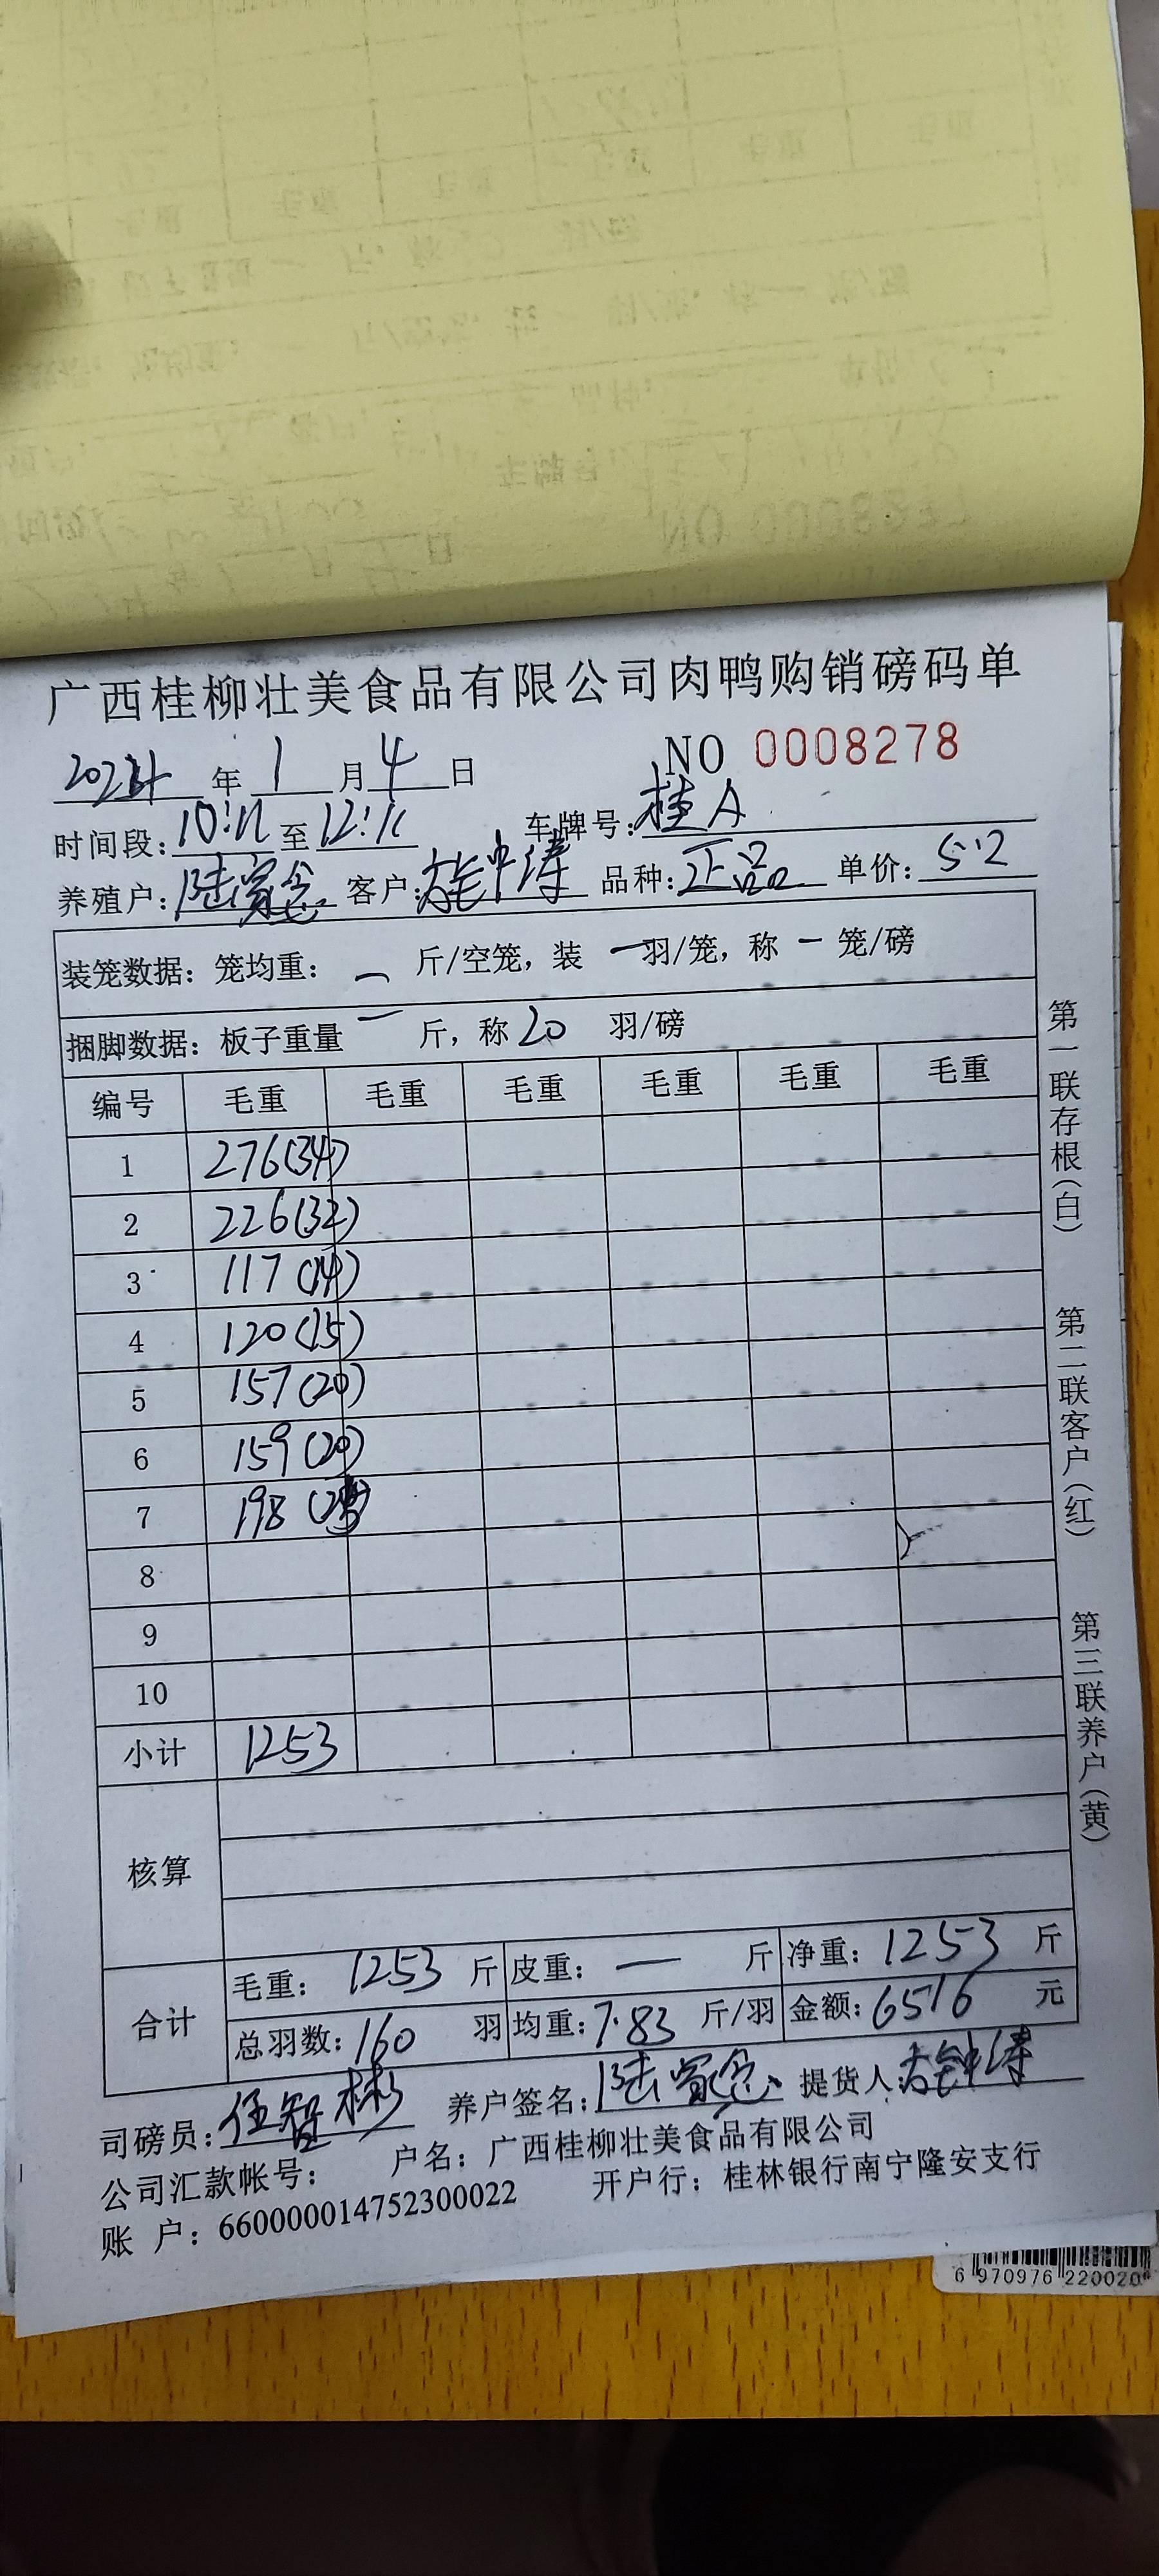 广西桂柳壮美食品有限公司肉鸭购销磅码单
2024 年 1 月 4 日 NO 0008278
时间段: 至 车牌号: 桂A
养殖户: 客户: 品种: 正品 单价: 5.2
装笼数据: 笼均重: 一 斤/空笼, 装 一 羽/笼, 称 一 笼/磅
捆脚数据: 板子重量 一 斤, 称 20 羽/磅
编号 毛重 毛重 毛重 毛重 毛重 毛重
1 276(34)
2 226(32)
3 117(14)
4 120(15)
5 157(20)
6 159(20)
7 198
8
9
10
小计 1253
核算
合计
毛重: 1253 斤 皮重: — 斤 净重: 1253 斤
总羽数: 160 羽 均重: 7.83 斤/羽 金额: 6516 元
司磅员: 伍智彬 养户签名: 提货人:
公司汇款帐号: 户名: 广西桂柳壮美食品有限公司
账 户: 660000014752300022 开户行: 桂林银行南宁隆安支行
第一联存根(白)
第二联客户(红)
第三联养户(黄)
6 970976 220020